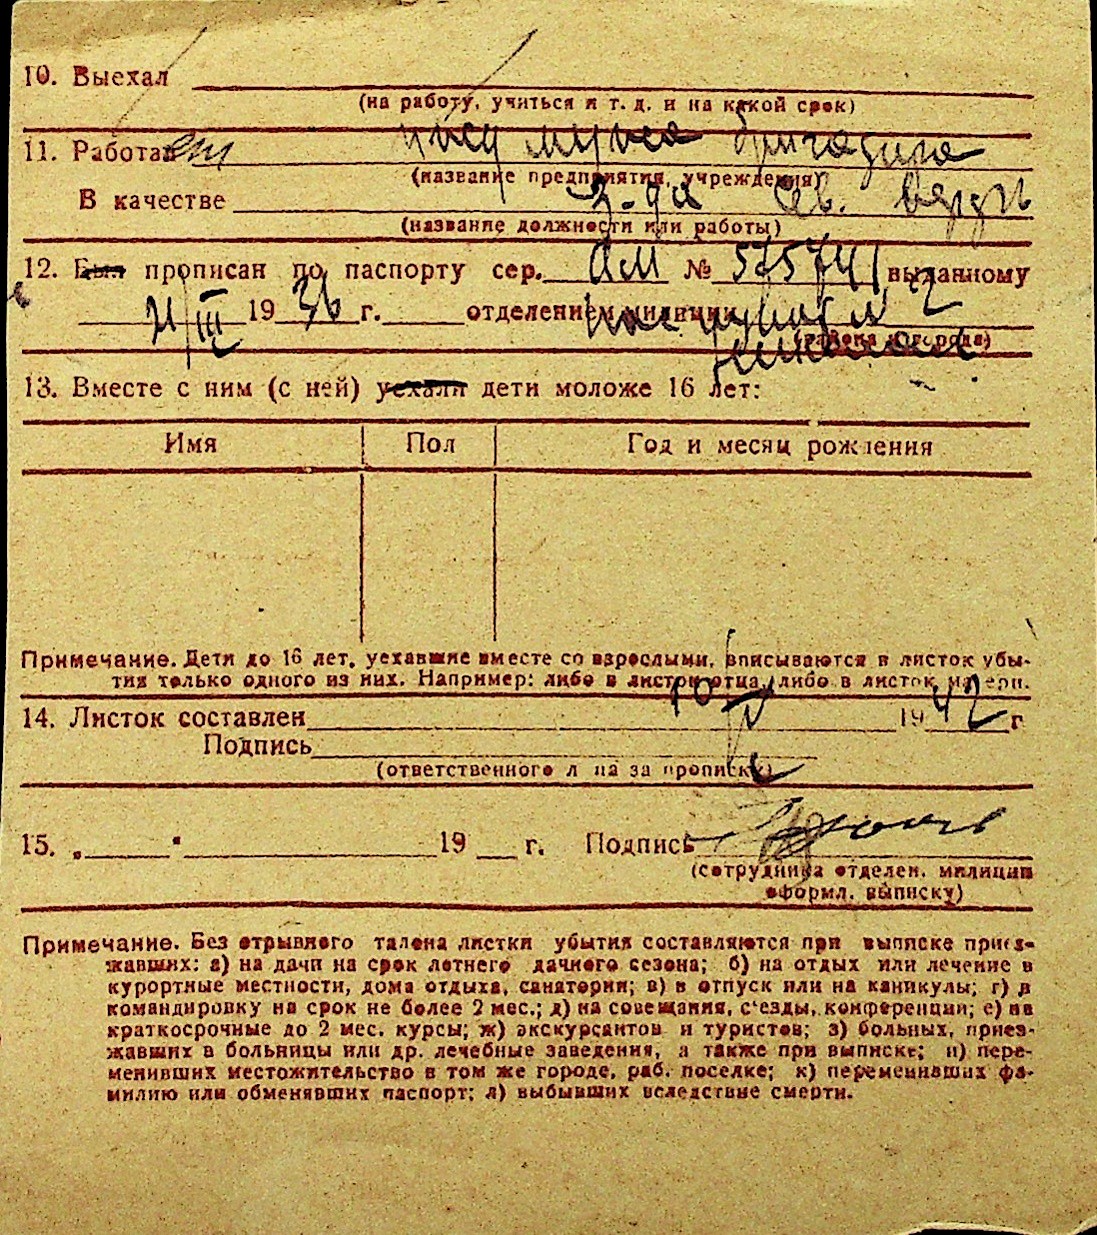 10. Выехал
(на работу, учиться и т. д. и на какой срок)
11. Работает мужа бригадира
(название предприятия, учреждения)
В качестве з-да верфь
(название должности или работы)
12. Был прописан по паспорту сер. АМ № 575741 выданному
III 1936 г. отделением милиции
(района и города)
13. Вместе с ним (с ней) уехали дети моложе 16 лет:
Имя Пол Год и месяц рождения
Примечание. Дети до 16 лет, уехавшие вместе со взрослыми, вписываются в листок убы-
тия только одного из них. Например: либо в листок отца, либо в листок матери.
14. Листок составлен 10/V 1942 г
Подпись
(ответственного лица за прописку)
15. „ “ 19 г. Подпись
(сотрудника отделен. милиции
оформл. выписку)
Примечание. Без отрывного талона листки убытия составляются при выписке приез-
жавших: а) на дачи на срок летнего дачного сезона; б) на отдых или лечение в
курортные местности, дома отдыха, санатории; в) в отпуск или на каникулы; г) в
командировку на срок не более 2 мес.; д) на совещания, с'езды, конференции; е) на
краткосрочные до 2 мес. курсы; ж) экскурсантов и туристов; з) больных, приез-
жавших в больницы или др. лечебные заведения, а также при выписке; и) пере-
менивших местожительство в том же городе, раб. поселке; к) переменивших фа-
милию или обменявших паспорт; л) выбывших вследствие смерти.